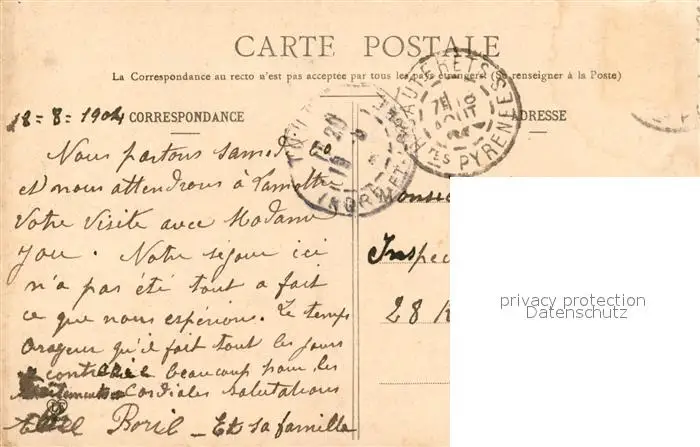 CARTE POSTALE
La Correspondance au recto n'est pas acceptée par tous les pays étrangers. (Se renseigner à la Poste)
18-8-1904 CORRESPONDANCE
ADRESSE
CAUTERETS
Htes PYRENEES
INDRE-ET-
Nous partons samedi 20
et nous attendrons à Lamotte
votre visite avec Madame
Notre séjour ici
n'a pas été tout a fait
ce que nous espérions. Le temps
orageux qu'il fait tout les jours
beaucoup pour les
Cordiales salutations
Boril - Et sa famille
Monsieur
Inspec
28 R
privacy protection
Datenschutz